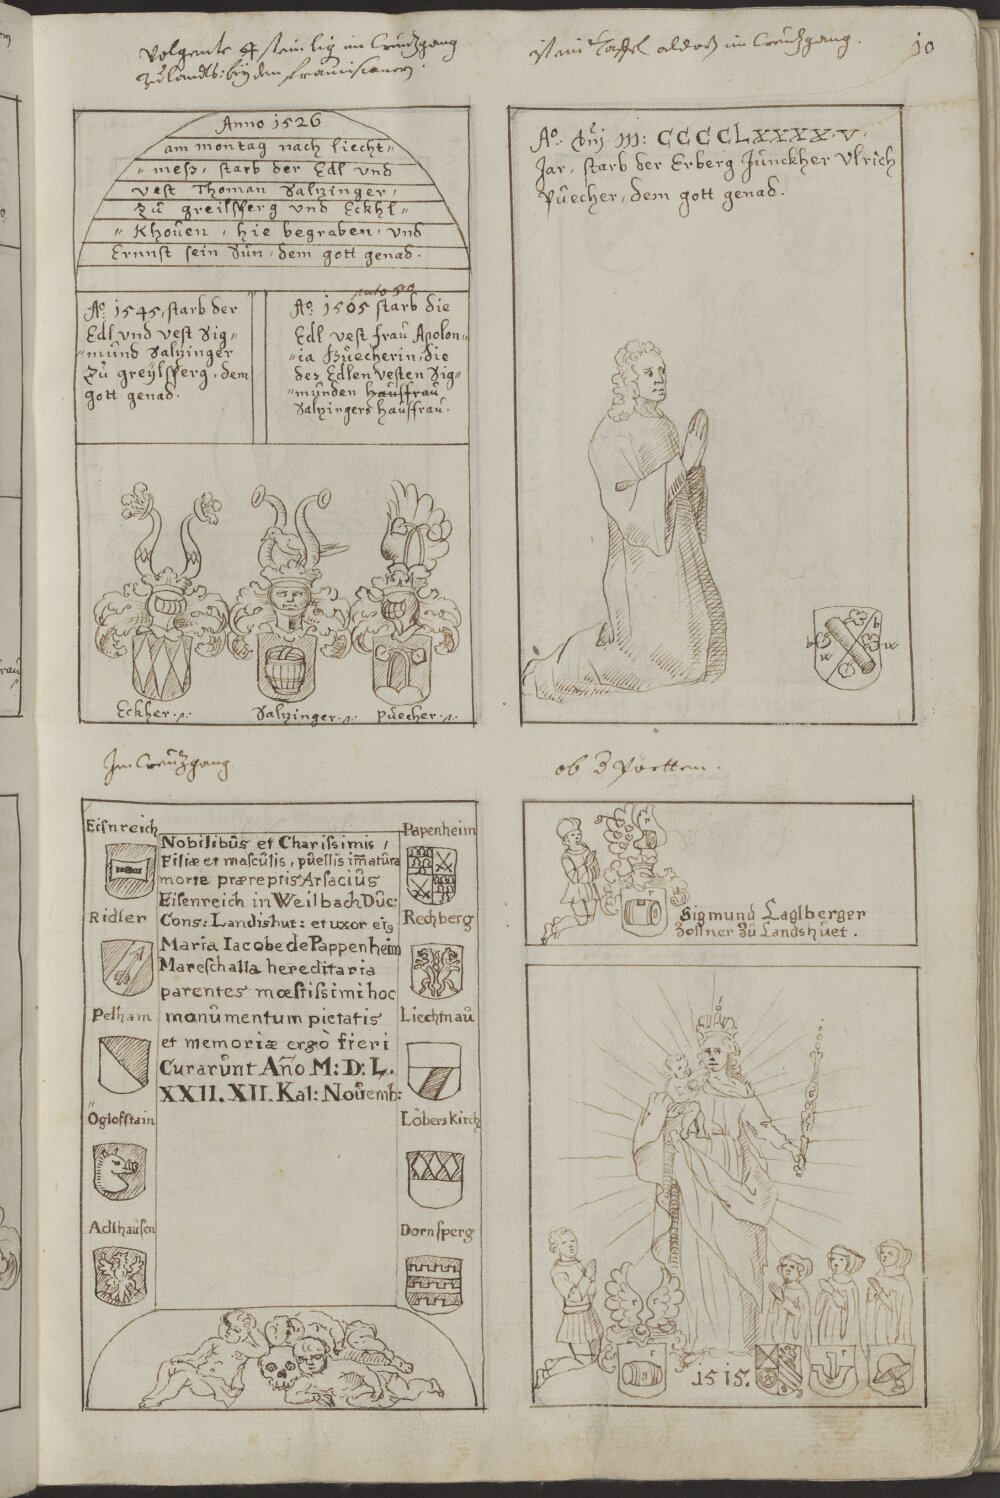 Volgente 4 stain lig im Creützgang
zu Landts: bey den Franciscaner.
ist ein Taffel aldort im Creützgang.
10
Anno 1526
am montag nach liecht"
"mess, starb der Edl vnd
vest Thoman Salzinger,
Zů greilsperg vnd Eckhl"
"Khoůen, hie begraben, vnd
Ernnst sein Sůn, dem gott genad.
Ao. 1545, starb der
Edl vnd vest Sig"
"můnd Salzinger
Zů greÿlsperg, dem
gott genad.
Ao. 1505 starb die
Edl vest fraů Apolon"
"ia Půecherin, die
des Edlen vesten Sig"
"můnden haůsfraů
Salzingers haůsfraů.
Eckher.
Salzinger.
půecher.
Ao. Dnj M: CCCCLXXXX.V.
Jar, starb der Erberg Jůnckher Vlrich
Půecher, dem gott genad.
b
w
w
Im Creützgang
ob 3 Portten.
Eisnreich
Ridler
Pelham
Öglofstain
Adlhaůsen
Nobilibůs et Charissimis,
Filiæ et mascůlis, půellis im̄atůra
morte præreptis Arsaciůs
Eisenreich in Weilbach Důc:
Cons: Landishut: et uxor ei9
Maria Iacobe de Pappenheim
Mareschalla hereditaria
parentes mœstissimi hoc
monůmentum pietatis
et memoriæ ergò fieri
Curarůnt Añо M: D: L.
XXII. XII. Kal: Noůemb:
Papenheim
Rechberg
Liechtnaů
Löberskirch
Dornsperg
Sigmund Laglberger
Zollner Zů Landshůet.
1515.